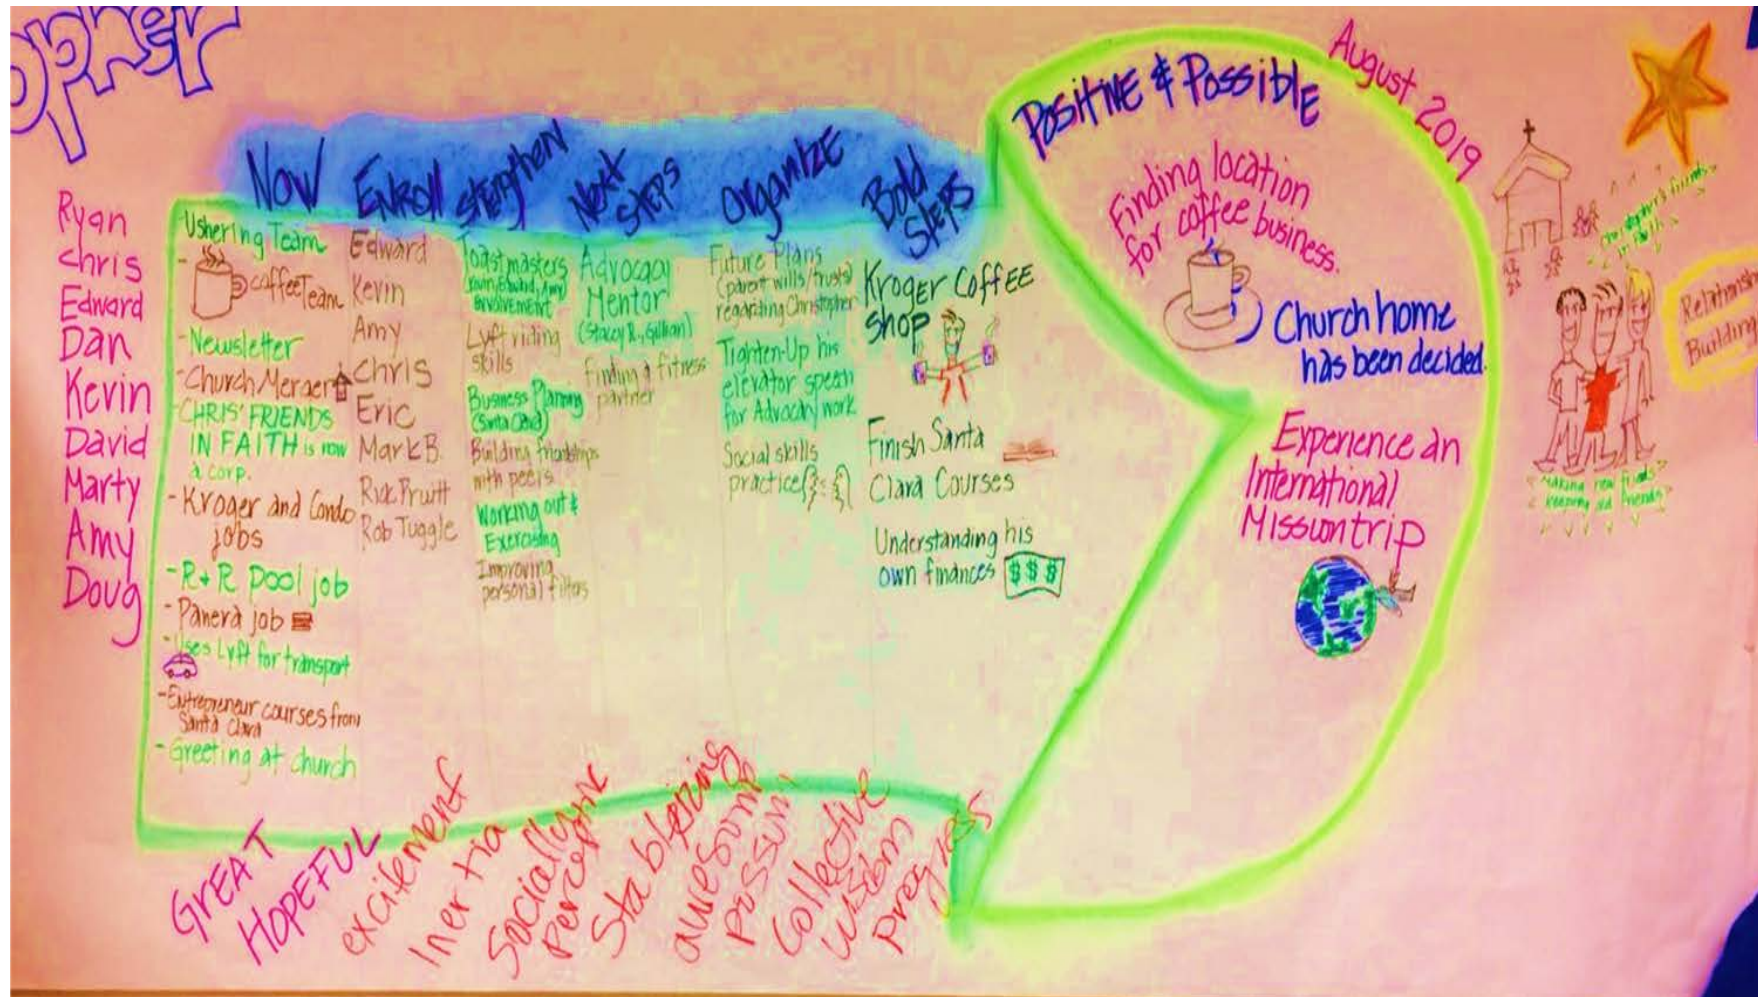 opher
Ryan
Chris
Edward
Dan
Kevin
David
Marty
Amy
Doug
Now
- Ushering Team
- coffee Team
- Newsletter
- Church Merger
- CHRIS' FRIENDS
IN FAITH is now
a corp.
- Kroger and Condo
jobs
- R+R Pool job
- Panera job
- Uses Lyft for transport
- Entrepreneur courses from
Santa Clara
- Greeting at church
Enroll
Edward
Kevin
Amy
Chris
Eric
Mark B.
Rick Pruitt
Rob Tuggle
Strengthen
Toastmasters
(Kevin, Edward, Amy)
involvement
Lyft riding
skills
Business Planning
(Santa Clara)
Building friendships
with peers
Working out &
Exercising
Improving
personal filters
Next
Steps
Advocacy
Mentor
(Stacey R., Gillian)
Finding a fitness
partner
Organize
Future Plans
(parent wills/trusts)
regarding Christopher
Tighten-Up his
elevator speech
for Advocacy work
Social skills
practice
Bold
Steps
Kroger Coffee
Shop
Finish Santa
Clara Courses
Understanding his
own finances $$$
Positive & Possible
August 2019
Finding location
for coffee business.
Church home
has been decided.
Experience an
International
Mission trip
Christopher's friends
in faith
Relationship
Building
Making new friends
keeping old friends
GREAT
HOPEFUL
excitement
Inertia
Socially
Perceptive
Stablizing
awesome
possum!
Collective
wisdom
progress